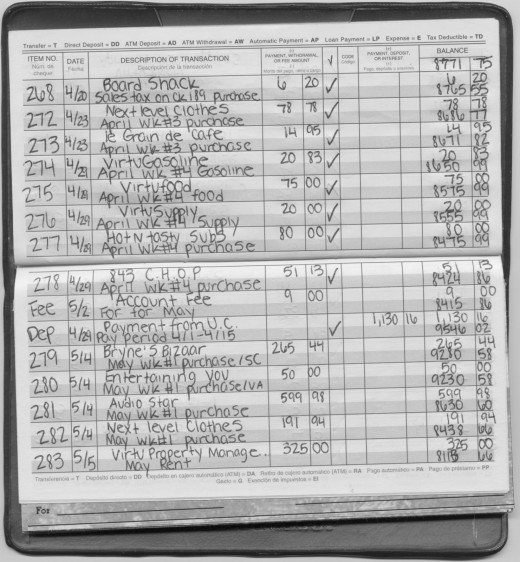 Transfer = T Direct Deposit = DD ATM Deposit = AD ATM Withdrawal = AW Automatic Payment = AP Loan Payment = LP Expense = E Tax Deductible = TD
ITEM NO. DATE DESCRIPTION OF TRANSACTION PAYMENT, WITHDRAWAL OR FEE AMOUNT √ CODE PAYMENT, DEPOSIT, OR INTEREST BALANCE
Núm. de cheque Fecha Descripción de la transacción 8771 75
268 4/20 Board Shack 6 20 √ 6 20
Sales tax on ck 189 purchase 8765 55
272 4/23 Next level Clothes 78 78 √ 78 78
April wk #3 purchase 8686 77
273 4/23 le Grain de cafe 14 95 √ 14 95
April wk #3 purchase 8671 82
274 4/29 Virtu Gasoline 20 83 √ 20 83
April wk #4 Gasoline 8650 99
275 4/29 Virtu food 75 00 √ 75 00
April wk #4 food 8575 99
276 4/29 Virtu Supply 20 00 √ 20 00
April wk #4 Supply 8555 99
277 4/29 Hot N tasty Subs 80 00 √ 80 00
April wk #4 purchase 8475 99
278 4/29 843 C.H.O.P 51 13 √ 51 13
April wk #4 purchase 8424 86
Fee 5/2 Account Fee 9 00 9 00
For for May 8415 86
Dep 4/29 Payment from U.C. √ 1,130 16 1,130 16
Pay period 4/1-4/15 9546 02
279 5/4 Bryne's Bizaar 265 44 265 44
May wk #1 purchase/SC 9280 58
280 5/4 Entertaining you 50 00 50 00
May wk #1 purchase/VA 9230 58
281 5/4 Audio Star 599 98 599 98
May wk #1 purchase 8630 60
282 5/4 Next level Clothes 191 94 191 94
May wk #1 purchase 8438 66
283 5/5 Virtu Property Manage.. 325 00 325 00
May Rent 8113 66
Transferencia = T Depósito directo = DD Depósito en cajero automático (ATM) = DA Retiro de cajero automático (ATM) = RA Pago automático = PA Pago de préstamo = PP
Gasto = G Exención de impuestos = EI
For